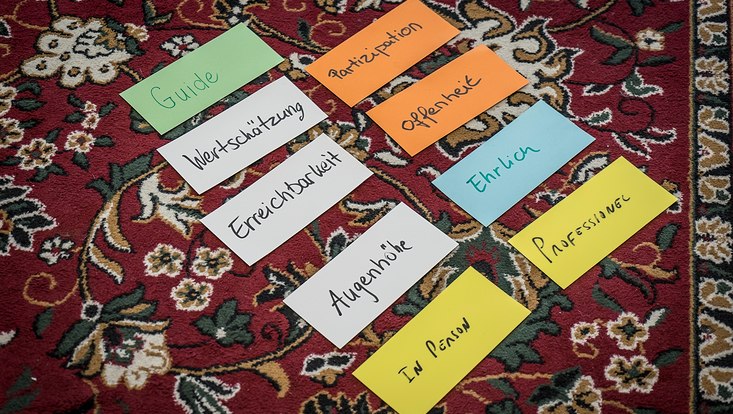 Guide
Wertschätzung
Erreichbarkeit
Augenhöhe
Partizipation
Offenheit
Ehrlich
PROFESSIONEL
IN PERSON